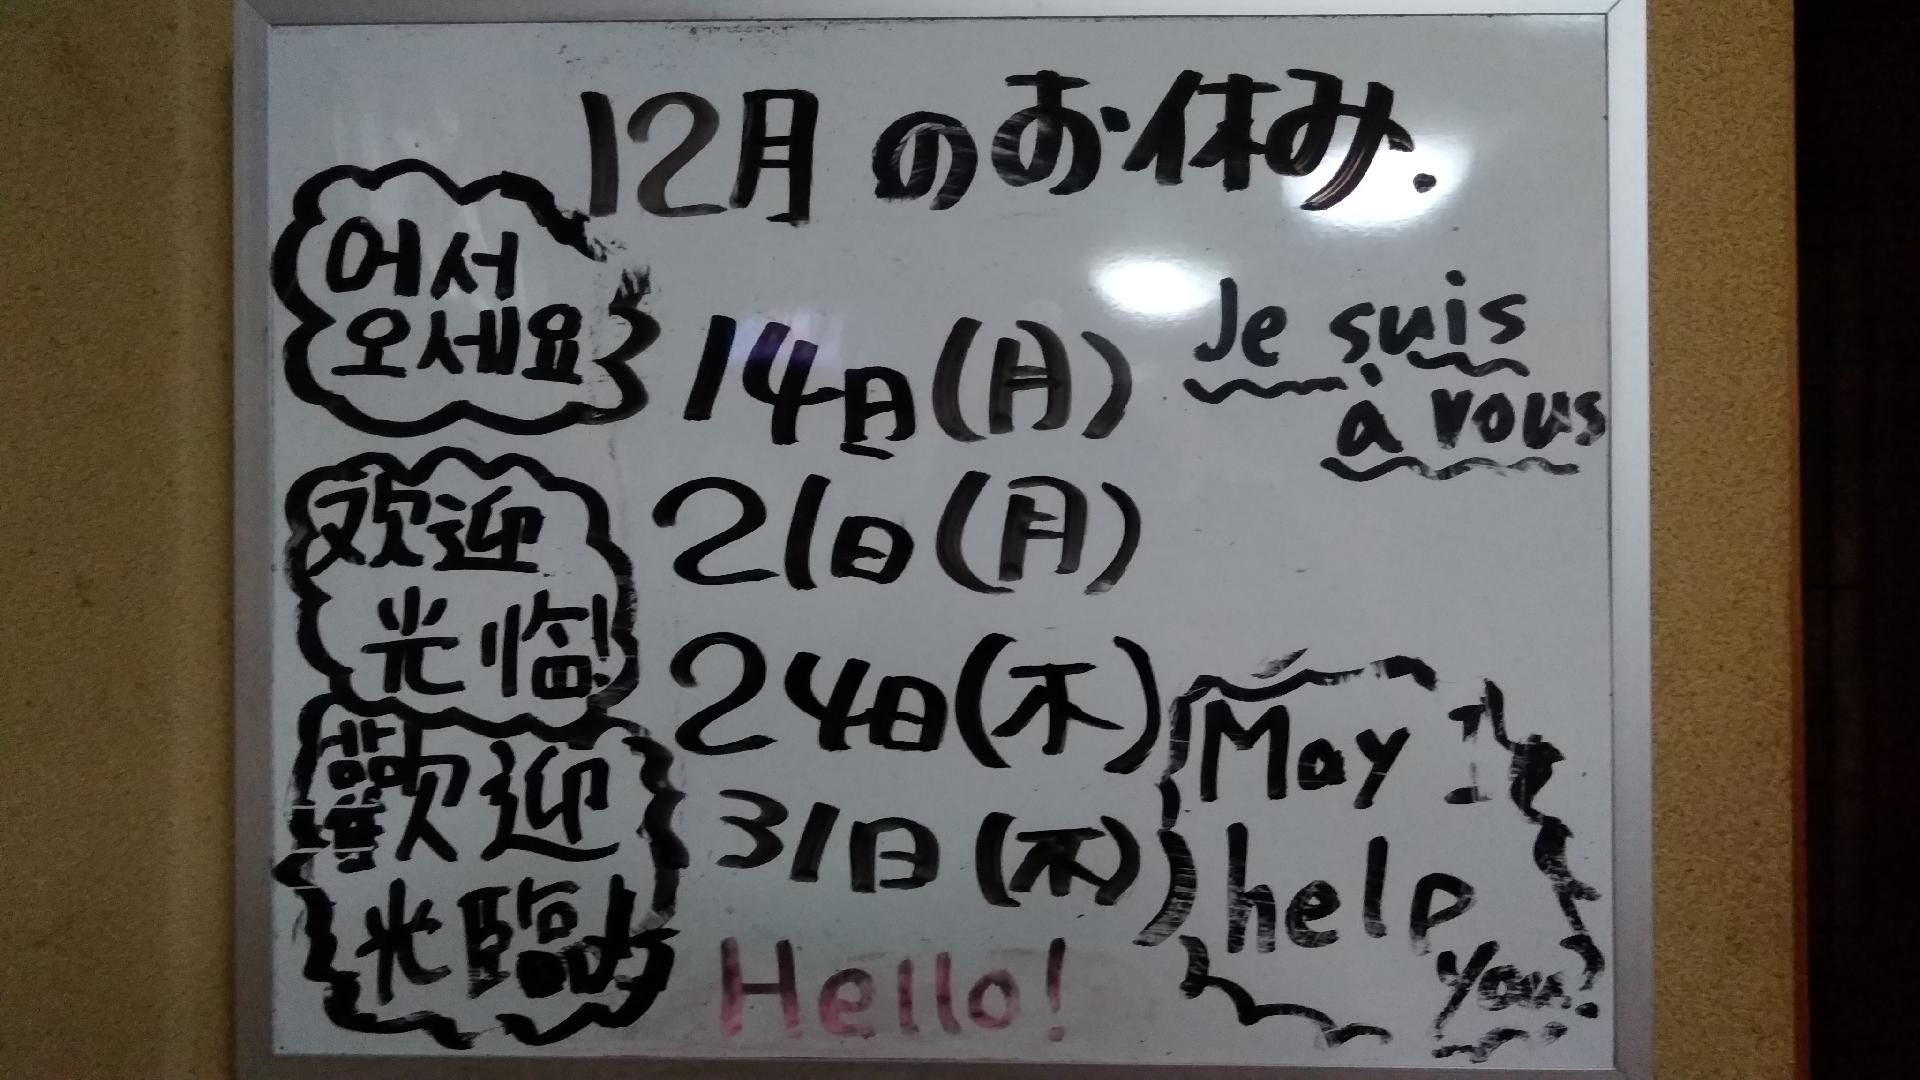 12月のお休み.
어서
오세요
14日(月)
Je suis
à vous
欢迎
光临!
21日(月)
24日(木)
歡迎
光臨
31日(木)
May I
help
you?
Hello!